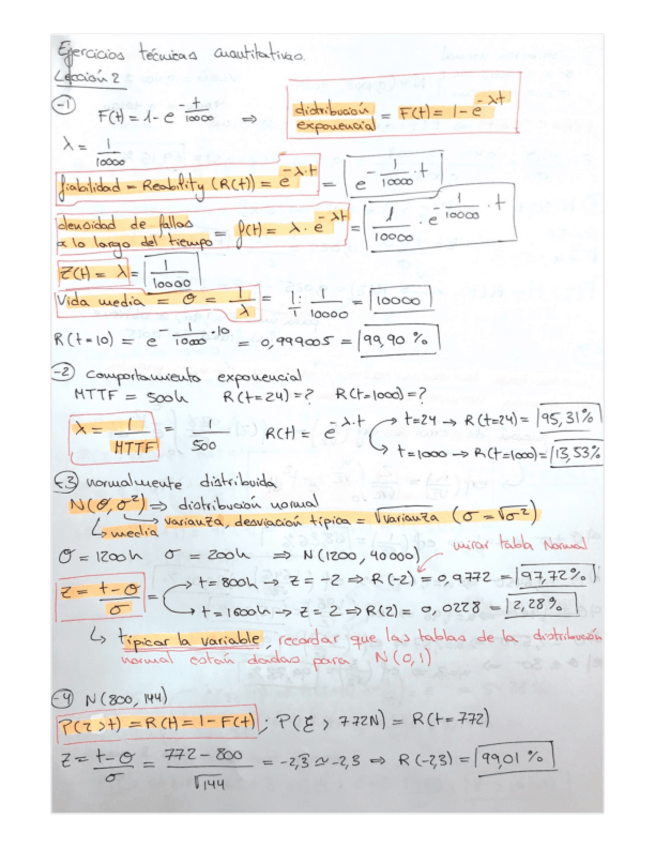 Ejercicios técnicas cuantitativas.
Lección 2
-1 F(t) = 1 - e^(-t/10000) ⇒ distribución exponencial = F(t) = 1 - e^(-λt)
λ = 1/10000
fiabilidad = Reability (R(t)) = e^(-λ·t) = e^(-1/10000 · t)
densidad de fallos a lo largo del tiempo = f(t) = λ · e^(-λt) = 1/10000 · e^(-1/10000 · t)
Z(t) = λ = 1/10000
Vida media = θ = 1/λ = 1/1 : 1/10000 = 10000
R(t=10) = e^(-1/10000 · 10) = 0,999005 = 99,90 %
-2 comportamiento exponencial
MTTF = 500h R(t=24) = ? R(t=1000) = ?
λ = 1/MTTF = 1/500 R(t) = e^(-λ·t) → t=24 → R(t=24) = 95,31%
→ t=1000 → R(t=1000) = 13,53%
-3 normalmente distribuida
N(θ, σ²) ⇒ distribución normal
↳ varianza, desviación típica = √varianza (σ = √σ²)
↳ media
θ = 1200h σ = 200h ⇒ N(1200, 40000) mirar tabla Normal
z = (t-θ)/σ = → t = 800h → z = -2 → R(-2) = 0,9772 = 97,72%
→ t = 1600h → z = 2 → R(2) = 0,0228 = 2,28%
↳ tipicar la variable, recordar que las tablas de la distribución
normal están dadas para N(0,1)
-4 N(800, 144)
P(τ > t) = R(t) = 1 - F(t) ; P(ξ > 772N) = R(t=772)
Z = (t-θ)/σ = (772-800)/√144 = -2,3̂ ≃ -2,3 ⇒ R(-2,3) = 99,01 %